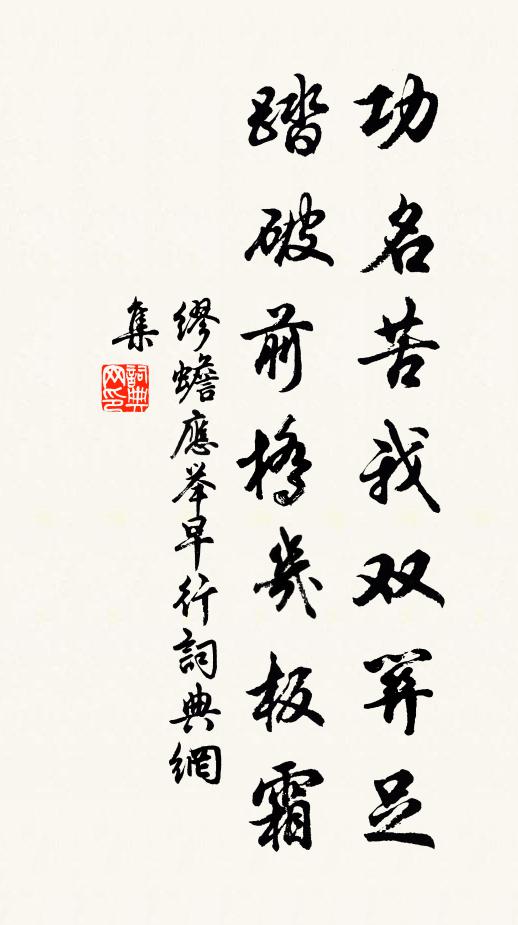 功名苦我双足
踏破前橋幾板霜
繆蟾應举早行詞典網
集
詞典
网印